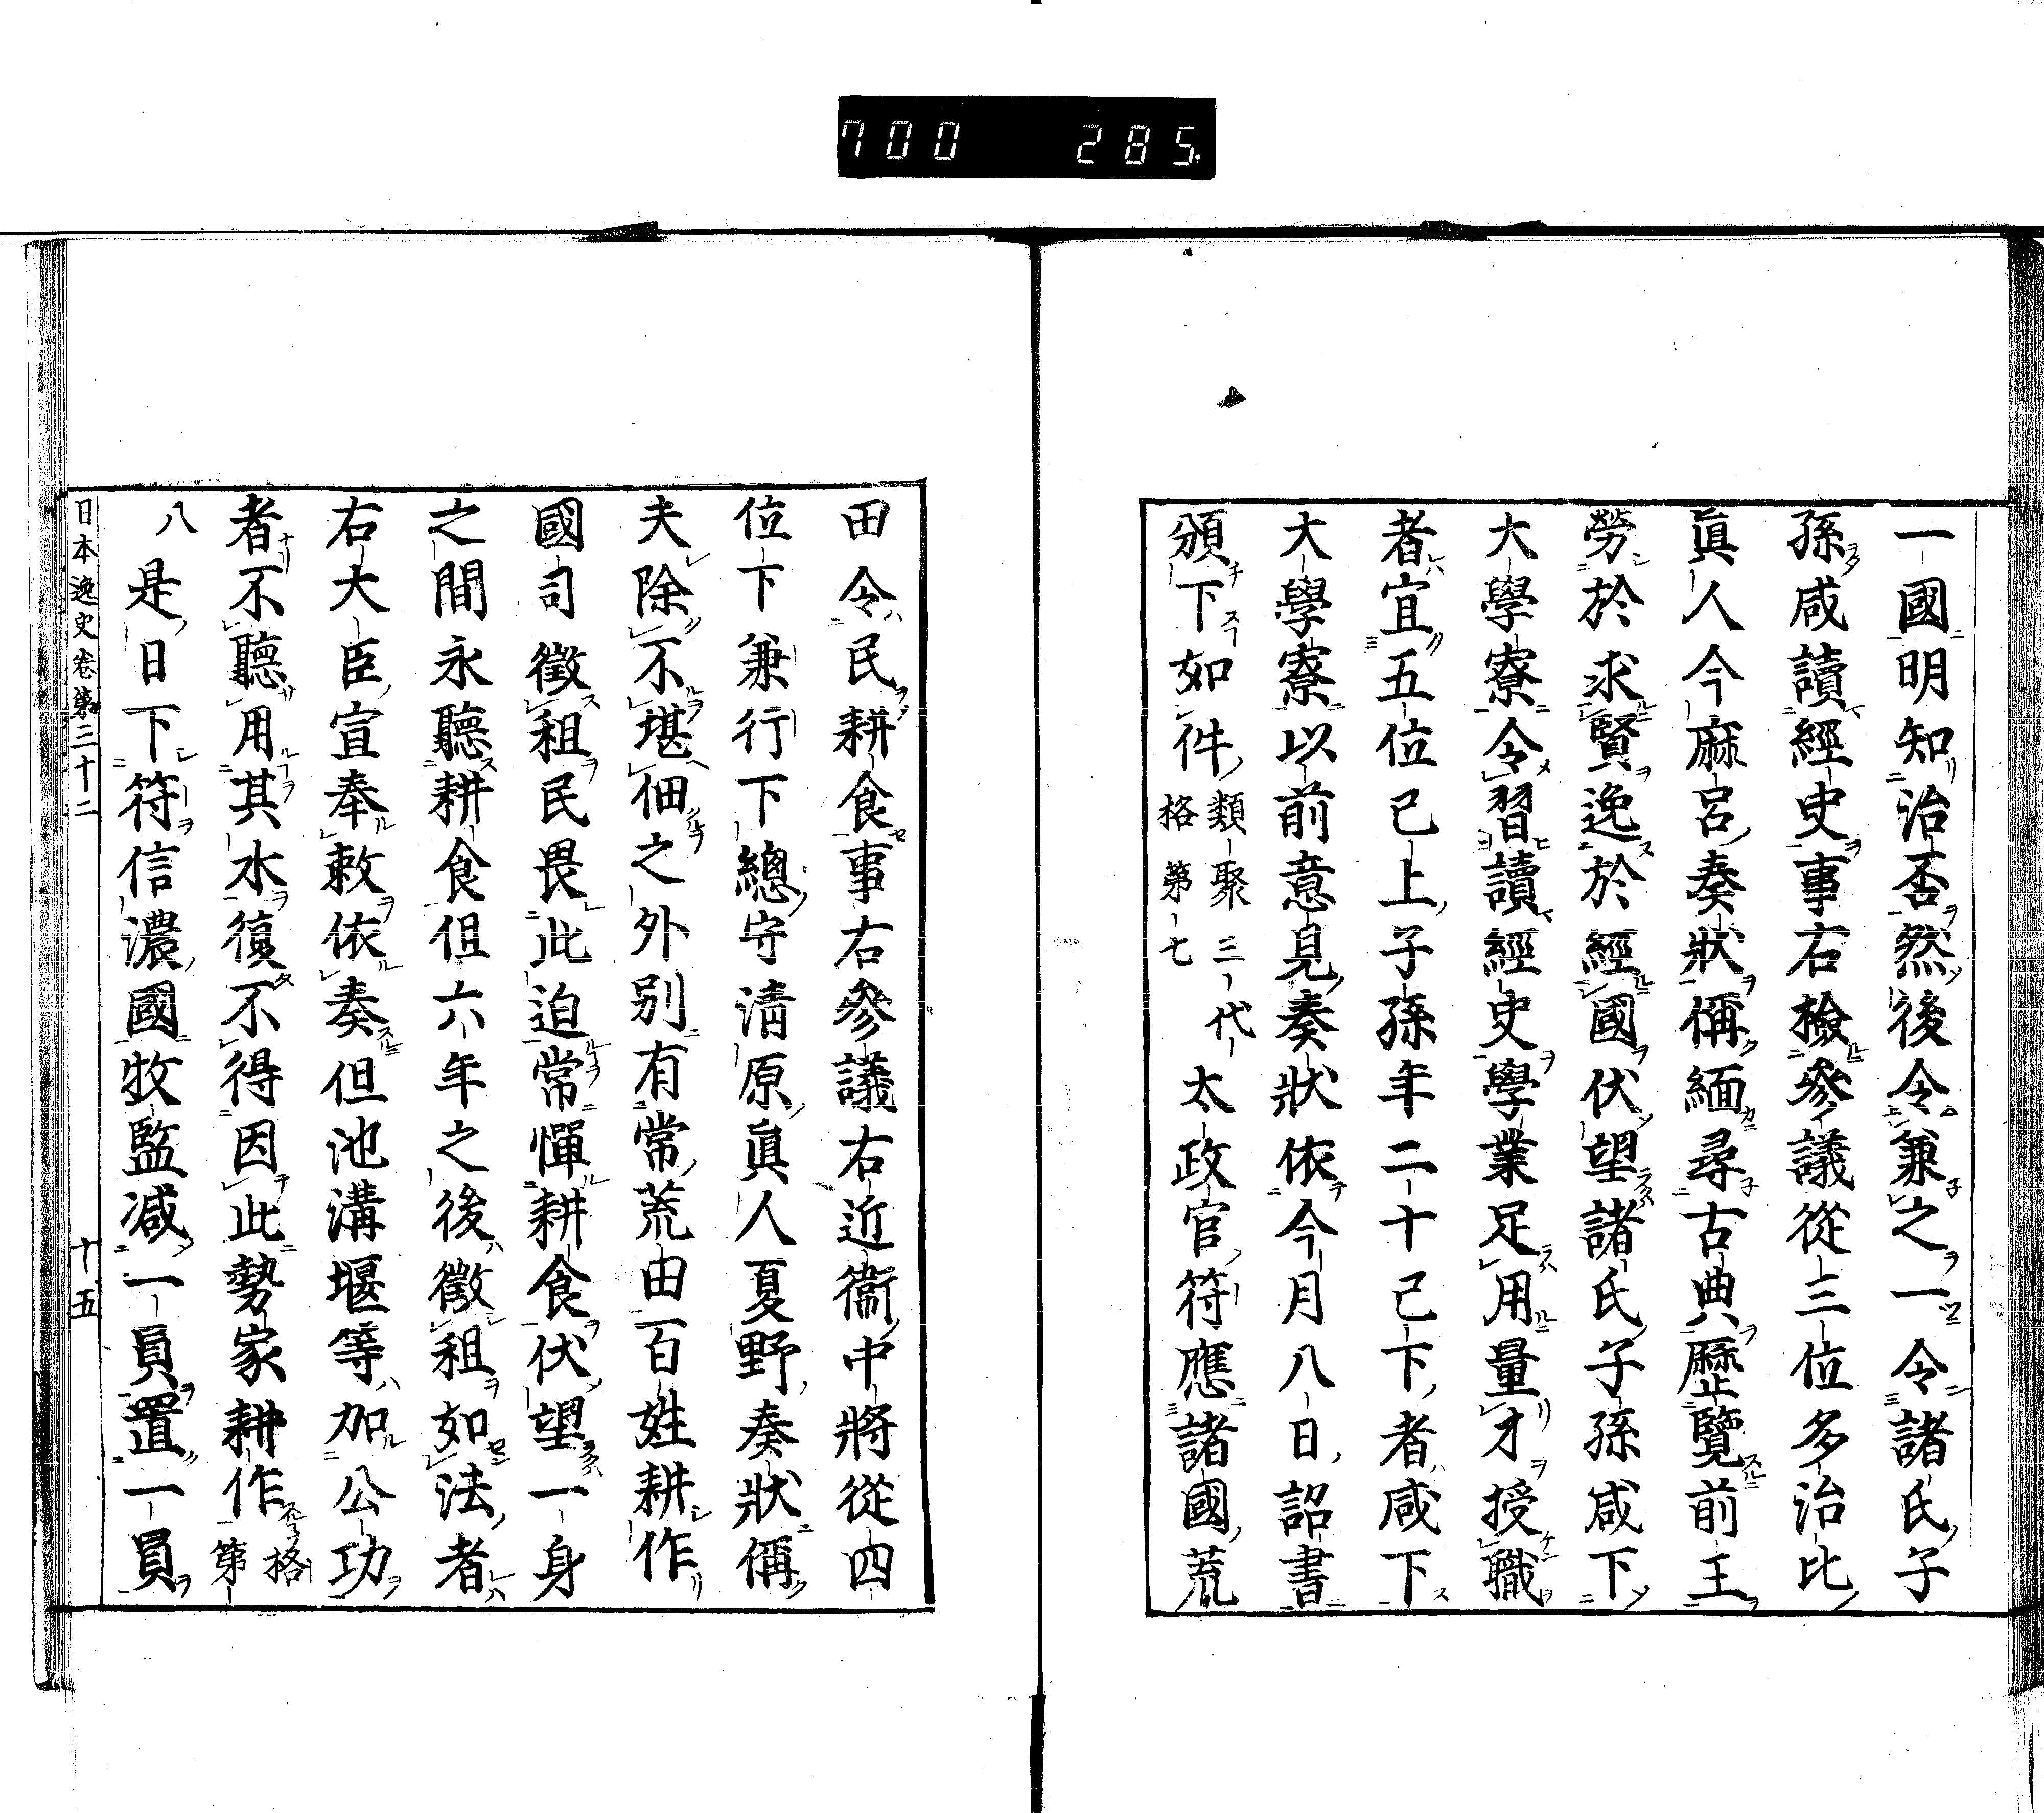 700 285
一國明知治否然後令兼之一令諸氏子
孫咸讀經史事右檢參議從三位多治比
眞人今麻呂奏狀偁緬尋古典歷覽前王
勞於求賢逸於經國伏望諸氏子孫咸下
大學寮令習讀經史學業足用量才授職
者宜五位已上子孫年二十已下者咸下
大學寮以前意見奏狀依今月八日詔書
頒下如件類聚三代格第七 太政官符應諸國荒
田令民耕食事右參議右近衞中將從四
位下兼行下總守清原眞人夏野奏狀偁
夫除不堪佃之外別有常荒田百姓耕作
國司徵租民畏此迫常憚耕食伏望一身
之間永聽耕食但六年之後徵租如法者
右大臣宣奉敕依奏但池溝堰等加公功
者不聽用其水復不得因此勢家耕作格第
八 是日下符信濃國牧監減一員置一員
日本逸史卷第三十二 十五